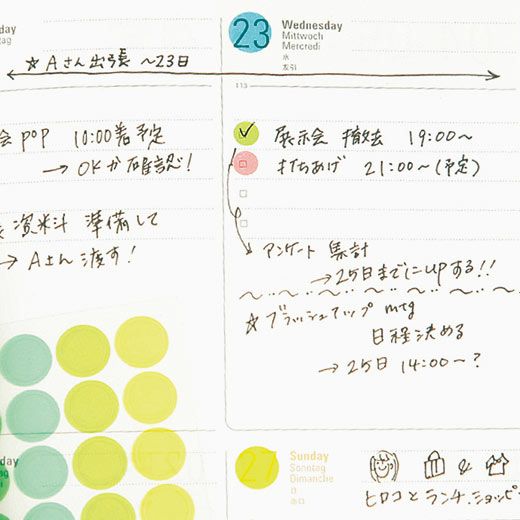 day
tag
☆Aさん出張 〜23日
会POP 10:00着予定
→OKか確認!
資料 準備して
→Aさん渡す!
23 Wednesday
Mittwoch
Mercredi
水
友引
113
展示会 撤去 19:00〜
打ちあげ 21:00〜(予定)
アンケート 集計
→25日までにupする!!
☆ブラッシュアップ mtg
日程決める
→25日 14:00〜?
day
tag
27 Sunday
Sonntag
Dimanche
日
&
ヒロコとランチ.ショッピ